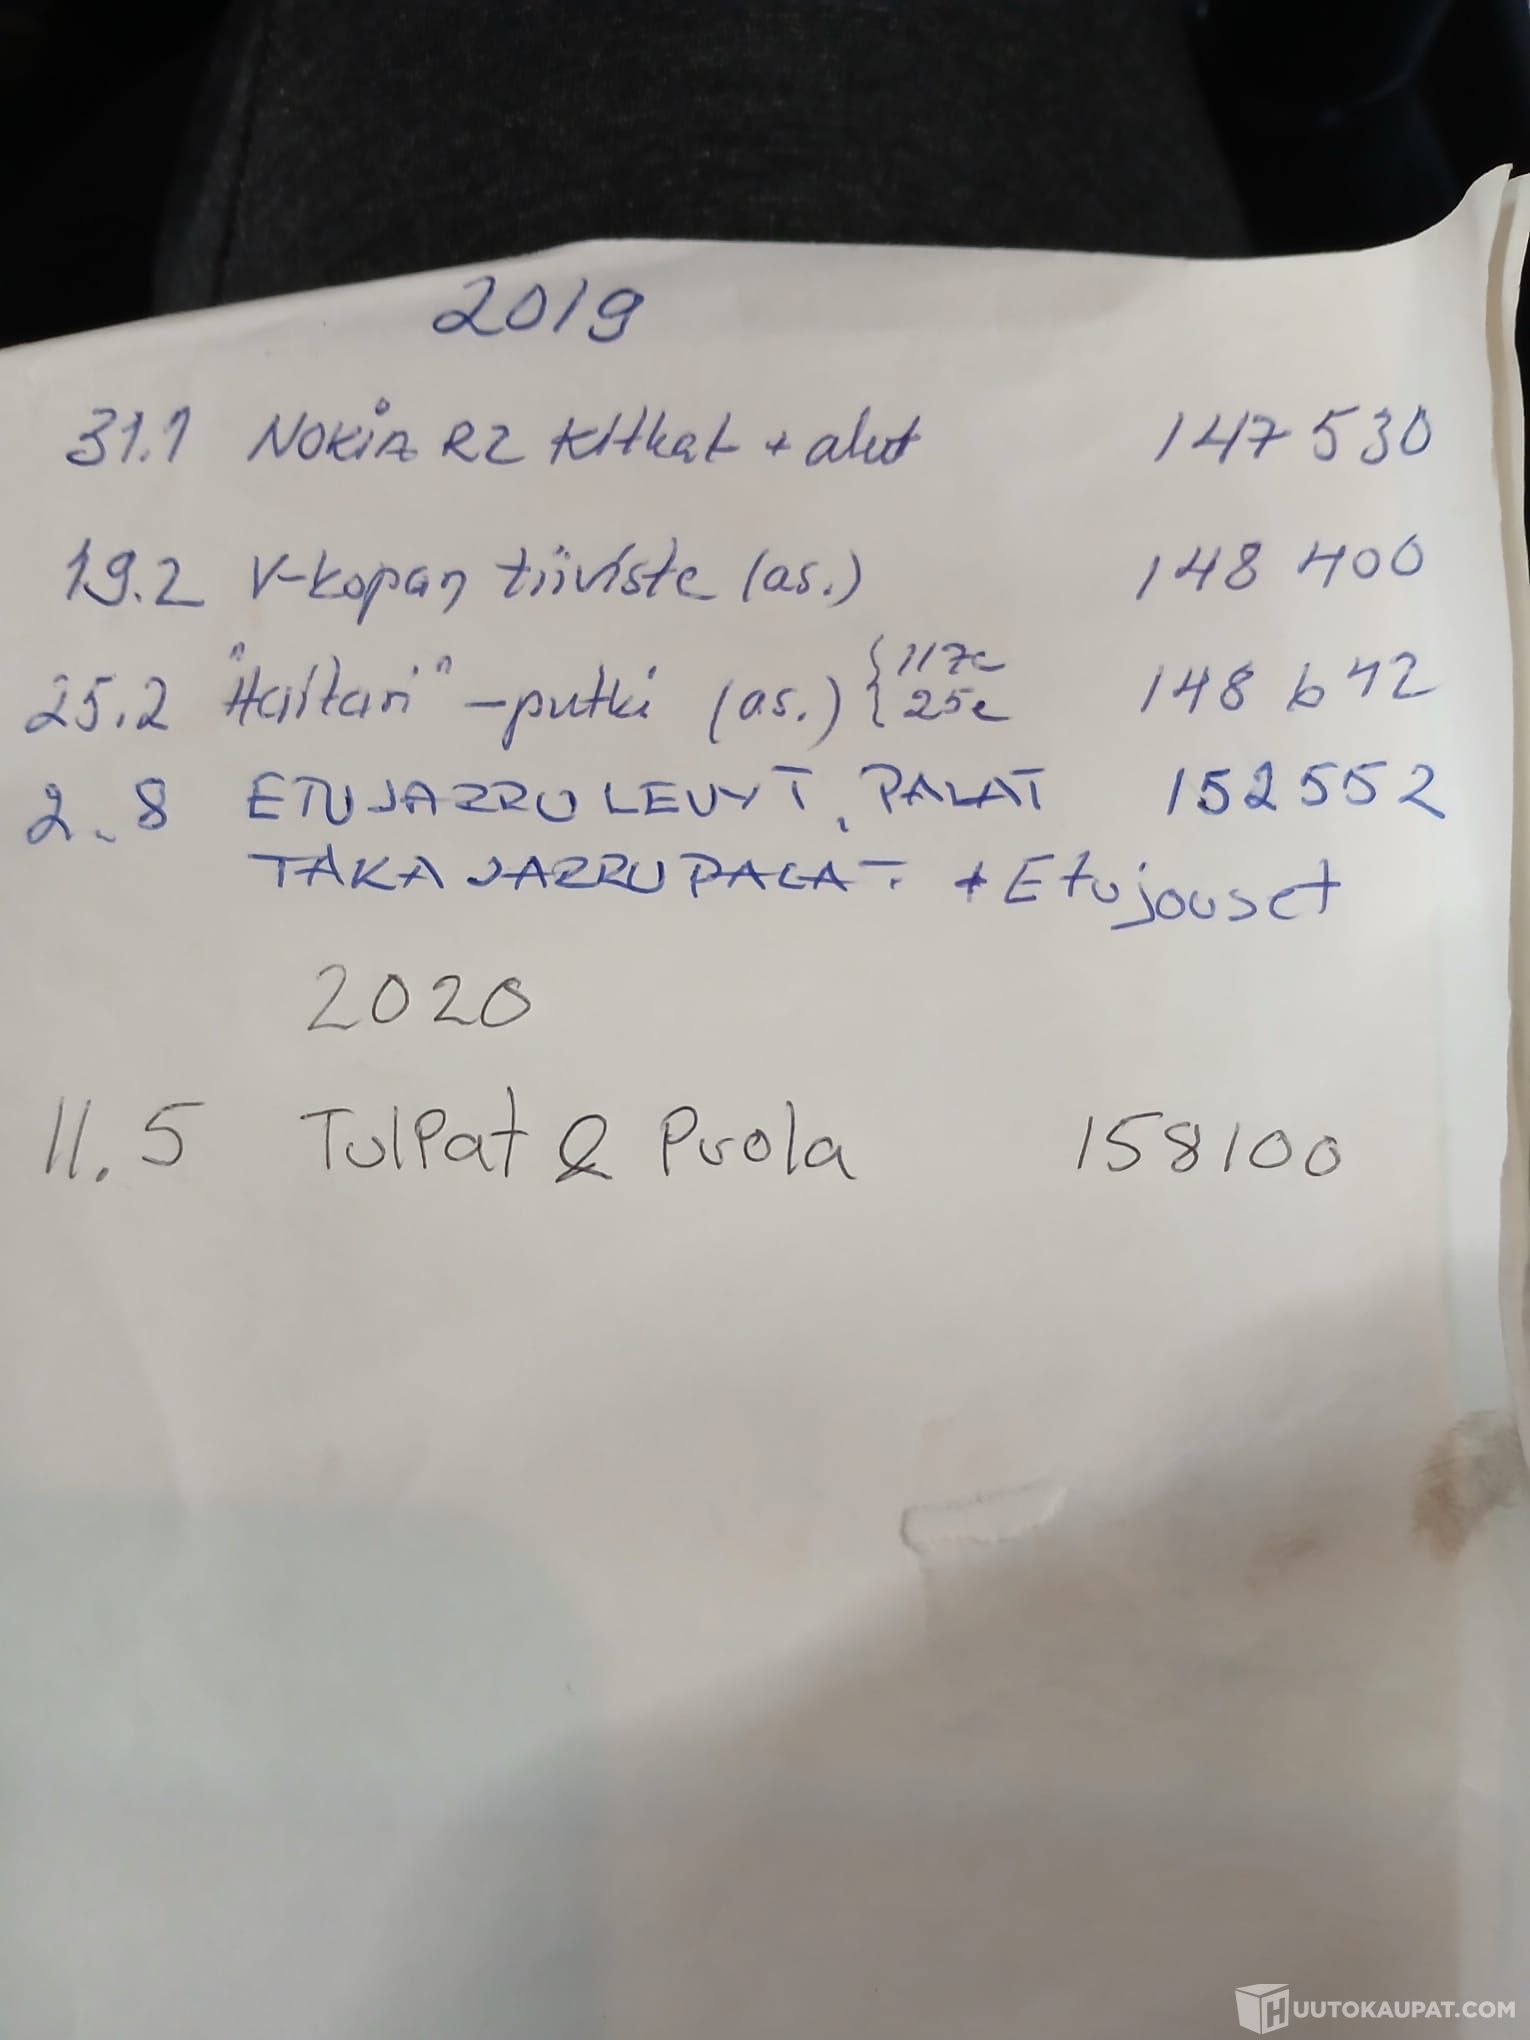 2019
31.1 NOKIA R2 Kitkat + alut 147 530
19.2 V-kopan tiiviste (as.) 148 400
25.2 "Haitari"-putki (as.) { 117e 25e 148 642
2.8 ETUJARRULEVYT, PALAT 152552
TAKAJARRUPALAT. + Etujouset
2020
11.5 TulPat & Puola 158100
HUUTOKAUPAT.COM